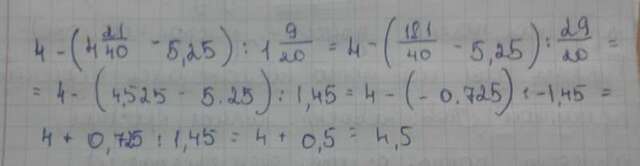 4 - (4 21/40 - 5,25) : 1 9/20 = 4 - (181/40 - 5,25) : 29/20 =
= 4 - (4,525 - 5.25) : 1,45 = 4 - (- 0.725) : -1,45 =
4 + 0,725 : 1,45 = 4 + 0,5 = 4,5